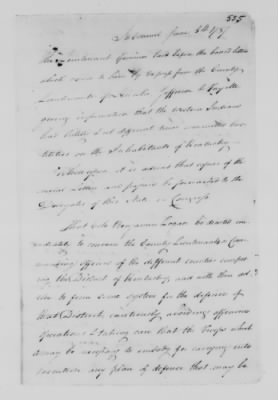 555
In Council June 5th 1787
The Lieutenant Governor laid before the board letters
which came to him by Express from the County
Lieutenants of Lincoln Jefferson & Fayette
giving information that the Western Indians
had lately & at different times committed hos-
tilities on the Inhabitants of Kentucky.
Whereupon it is advised that copies of the
said Letters and papers be forwarded to the
Delegates of this State in Congress
That Colo Benjamin Logan be desired im-
mediately to convene the County Lieutenants & Com-
manding officers of the different counties compos-
ing the District of Kentucky, and with them ad-
vise to form some system for the defence of
that District, cautiously avoiding offensive
operations & taking care that the Troops which
it may be necessary to embody for carrying into
execution any plan of defence that may be